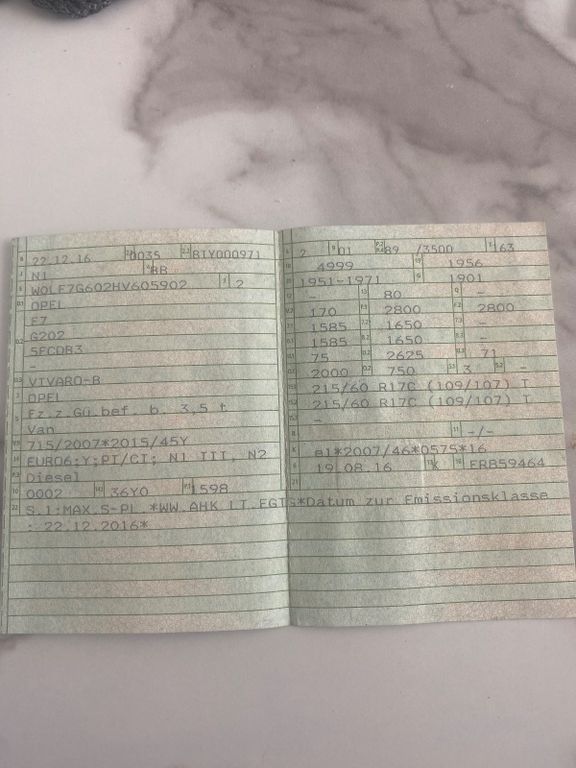 22.12.16 0035 BTY000971
N1 BB
W0LF7G602HV605902 2
OPEL
F7
G202
5FCDB3
–
VIVARO-B
OPEL
Fz.z.Gü.bef. b. 3,5 t
Van
715/2007*2015/45Y
EURO6;Y;PI/CI; N1 III, N2
Diesel
0002 36Y0 1598
S.1:MAX.S-PL.*WW.AHK LT.EGTG*Datum zur Emissionsklasse
: 22.12.2016*
2 01 89 /3500 163
4999 1956
1951-1971 1901
– 80 –
170 2800 2800
1585 1650 –
1585 1650 –
75 2625 71
2000 750 3 –
215/60 R17C (109/107) T
215/60 R17C (109/107) T
–
-/-
e1*2007/46*0575*16
19.08.16 K ER859464